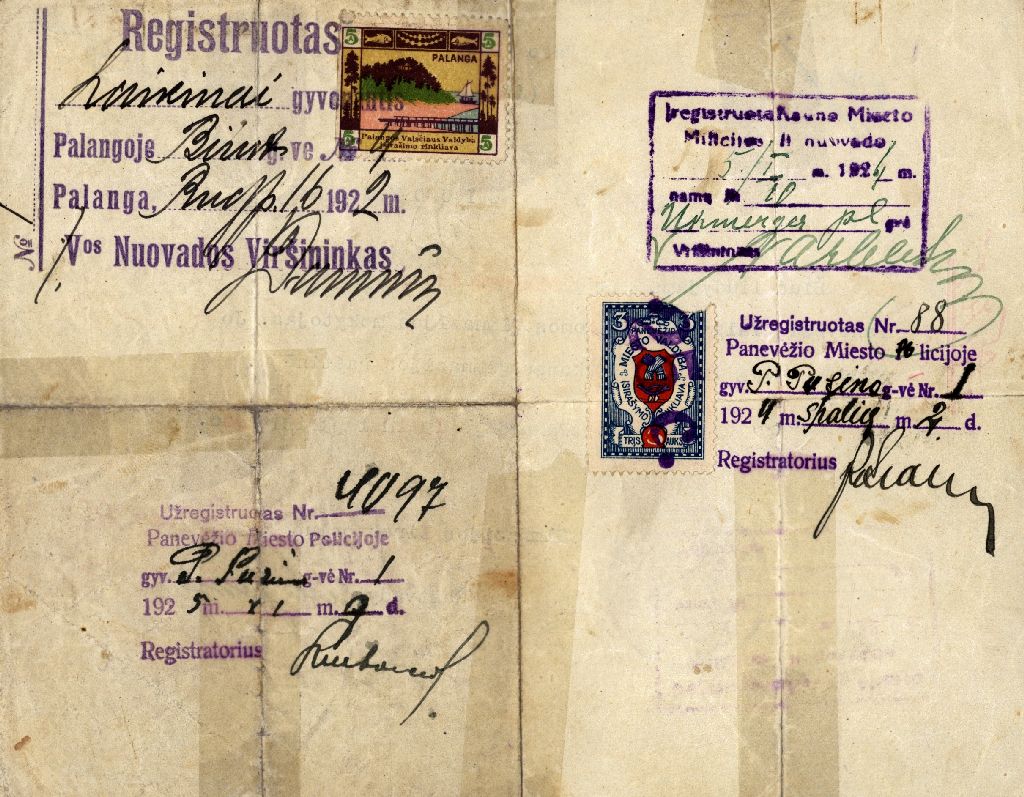 Registruotas
Laikinai gyvenantis
Palangoje Birut g-ve №
Palanga, Rugp. 16 1922 m.
Vos Nuovados Viršininkas
№
5 5
PALANGA
5 5
Palangos Valsčiaus Valdyba
Įrašimo rinkliava
Įregistruota Kauno Miesto
Milicijos II nuovado
5/I m. 1924 m.
namo № 10
Ukmergės pl. gvė
Viršininkas
3 3
MIESTO VALDYBA
ĮSIRAŠYMO RINKLIAVA
TRIS AUKS
Užregistruotas Nr. 88
Panevėžio Miesto Policijoje
gyv. P. Puzino g-vė Nr. 1
1924 m. spalių m. 2 d.
Registratorius
Užregistruotas Nr. 4097
Panevėžio Miesto Policijoje
gyv. P. Puzin g-vė Nr. 1
1925 m. VI m. 9 d.
Registratorius